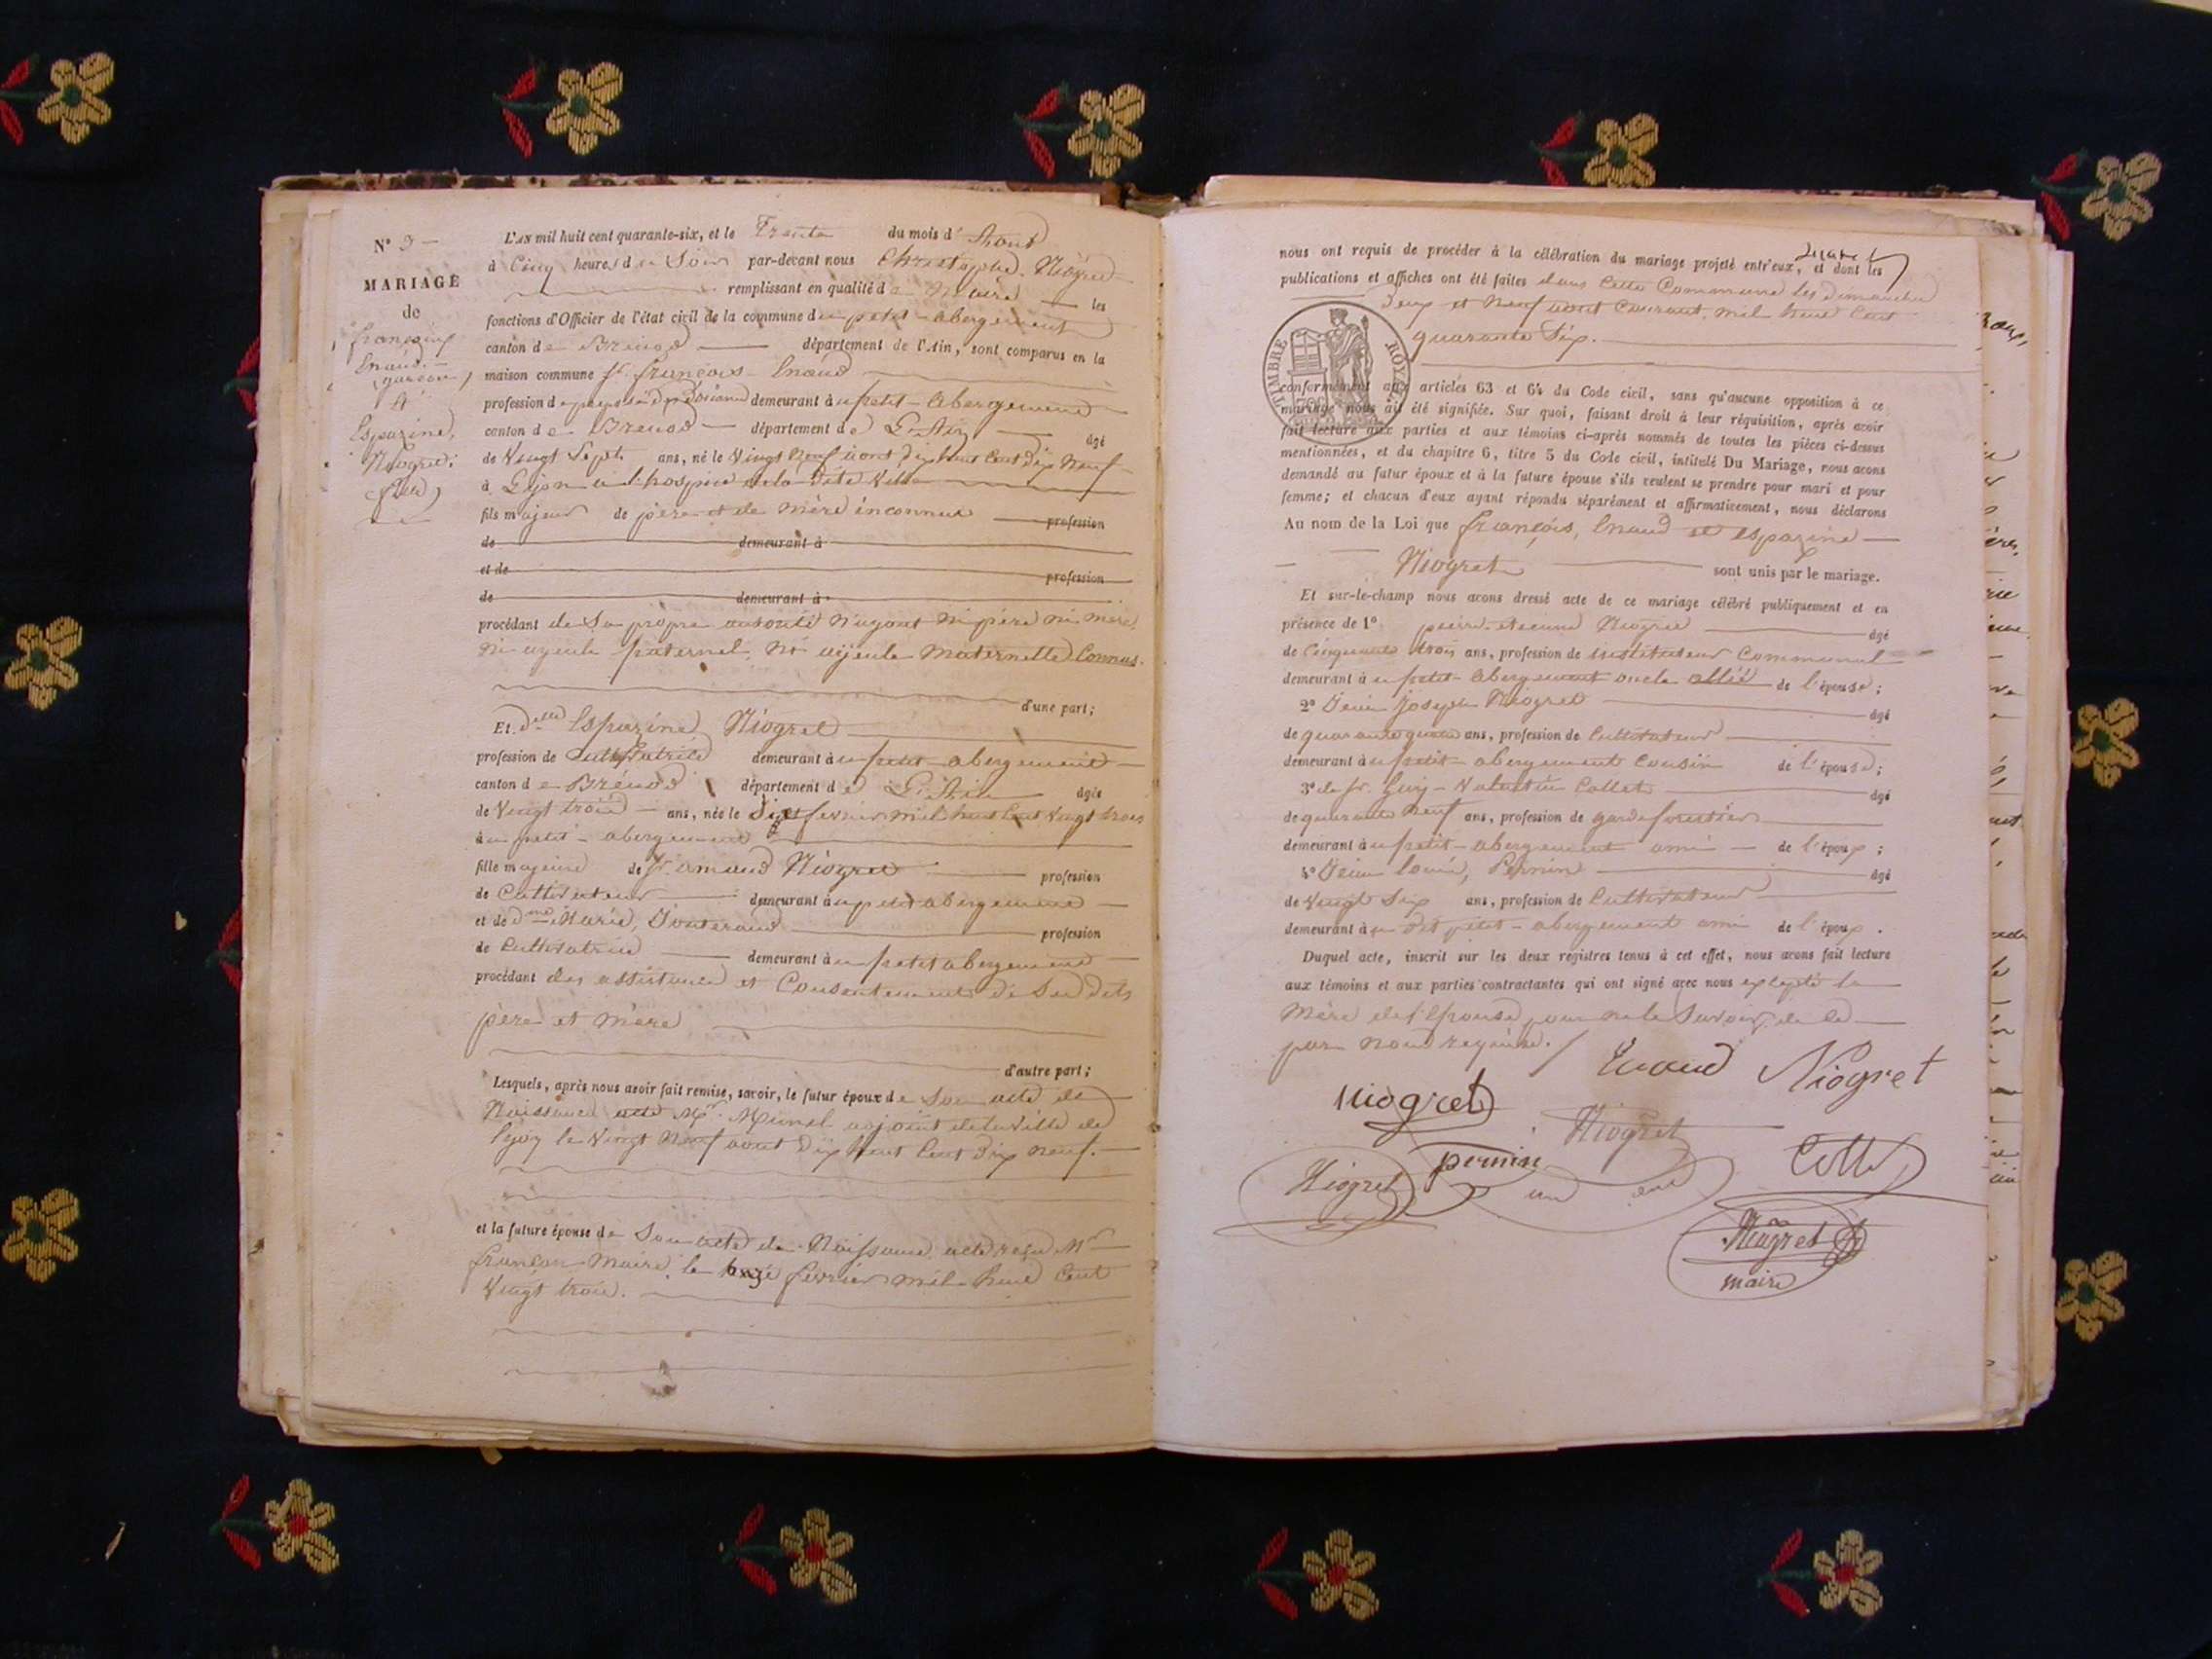 N° 9
MARIAGE
de
françois
Enaud
garçon
à
Esparine
Niogret
fille
L'AN mil huit cent quarante-six, et le Trente du mois d'Aout
à Cinq heures du Soir par-devant nous Christophe Niogret
remplissant en qualité de Maire les
fonctions d'Officier de l'état civil de la commune du petit-abergement
canton de Brenod département de l'Ain, sont comparus en la
maison commune Sr. françois Enaud
profession de demeurant au petit-abergement
canton de Brenod département de L'Ain âgé
de Vingt Sept ans, né le Vingt Neuf aout, dix huit Cent dix Neuf
à Lyon a l'hospice de la dite Ville
fils majeur de père et de Mère inconnus profession
de demeurant à
et de profession
de demeurant à
procédant de Sa propre autorité N'ayant Ni père ni mère
ni ayeule paternel, Ni ayeule Maternelle Connus.
d'une part;
Et delle Esparine Niogret
profession de Cultivatrice demeurant au petit-abergement
canton de Brénod département de L'Ain âgée
de Vingt trois ans, née le fevrier mil huit Cent Vingt trois
au petit-abergement
fille majeure de Sr. amand Niogret profession
de Cultivateur demeurant au petit abergement
et de dme Marie, profession
de Cultivatrice demeurant au petit abergement
procédant des assistance et Consentement de Ses dits
père et Mère
d'autre part;
Lesquels, après nous avoir fait remise, savoir, le futur époux de Son acte de
Naissance acte Mr. adjoint de la Ville de
Lyon le Vingt Neuf aout dix huit Cent dix neuf.
et la future épouse de Son acte de Naissance acte reçu Mr
françon Maire le fevrier mil huit Cent
Vingt trois.
nous ont requis de procéder à la célébration du mariage projeté entr'eux, et dont les
publications et affiches ont été faites dans Cette Commune les Dimanches
Deux et Neuf aout Courant, mil huit Cent
quarante Six.
TIMBRE ROYAL
conformément aux articles 63 et 64 du Code civil, sans qu'aucune opposition à ce
mariage nous ait été signifiée. Sur quoi, faisant droit à leur réquisition, après avoir
fait lecture aux parties et aux témoins ci-après nommés de toutes les pièces ci-dessus
mentionnées, et du chapitre 6, titre 5 du Code civil, intitulé Du Mariage, nous avons
demandé au futur époux et à la future épouse s'ils veulent se prendre pour mari et pour
femme; et chacun d'eux ayant répondu séparément et affirmativement, nous déclarons
Au nom de la Loi que françois, Enaud et esparine
Niogret sont unis par le mariage.
Et sur-le-champ nous avons dressé acte de ce mariage célébré publiquement et en
présence de 1° pierre Niogret âgé
de Cinquante trois ans, profession de instituteur Communal
demeurant au petit-abergement oncle allié de l'épouse;
2° Joseph Niogret âgé
de quarante quatre ans, profession de Cultivateur
demeurant au petit-abergement Cousin de l'épouse;
3° de Sr. Guy-Valentin Collet âgé
de quarante Neuf ans, profession de garde forestier
demeurant au petit-abergement ami de l'époux;
4° louis, Pernin âgé
de Vingt Six ans, profession de Cultivateur
demeurant au dit petit-abergement ami de l'époux.
Duquel acte, inscrit sur les deux registres tenus à cet effet, nous avons fait lecture
aux témoins et aux parties contractantes qui ont signé avec nous excepté la
Mère de l'Epouse, pour ne le Savoir, de ce
par nous requise.
Enaud Niogret
Niogret
Niogret
pernin
Collet
Niogret
Niogret
maire